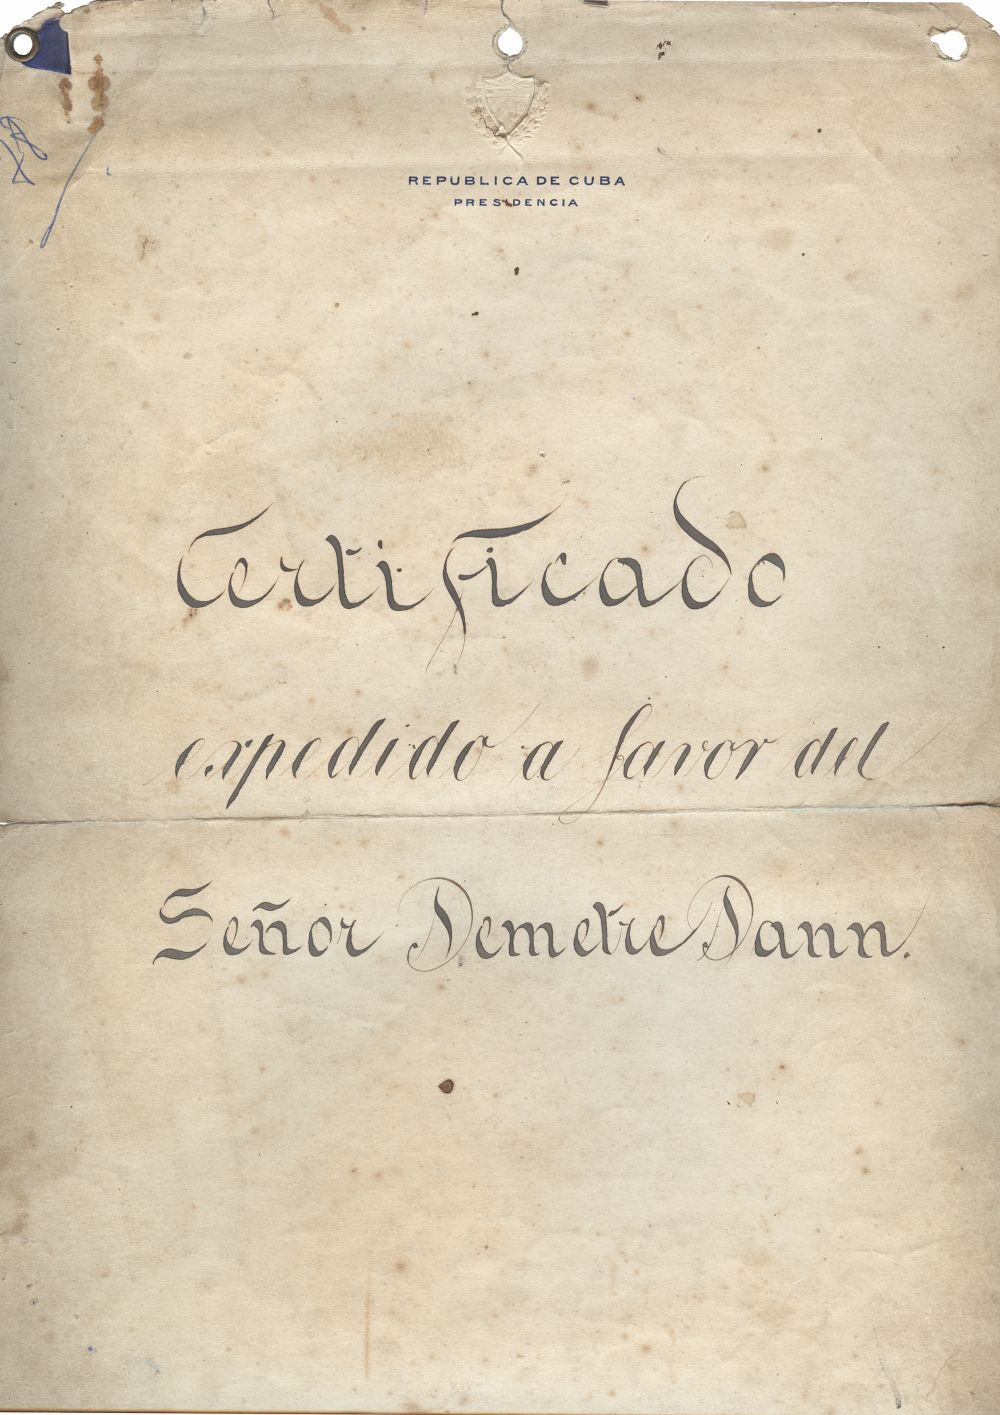 REPUBLICA DE CUBA
PRESIDENCIA
Certificado
expedido a favor del
Señor Demetre Dann.